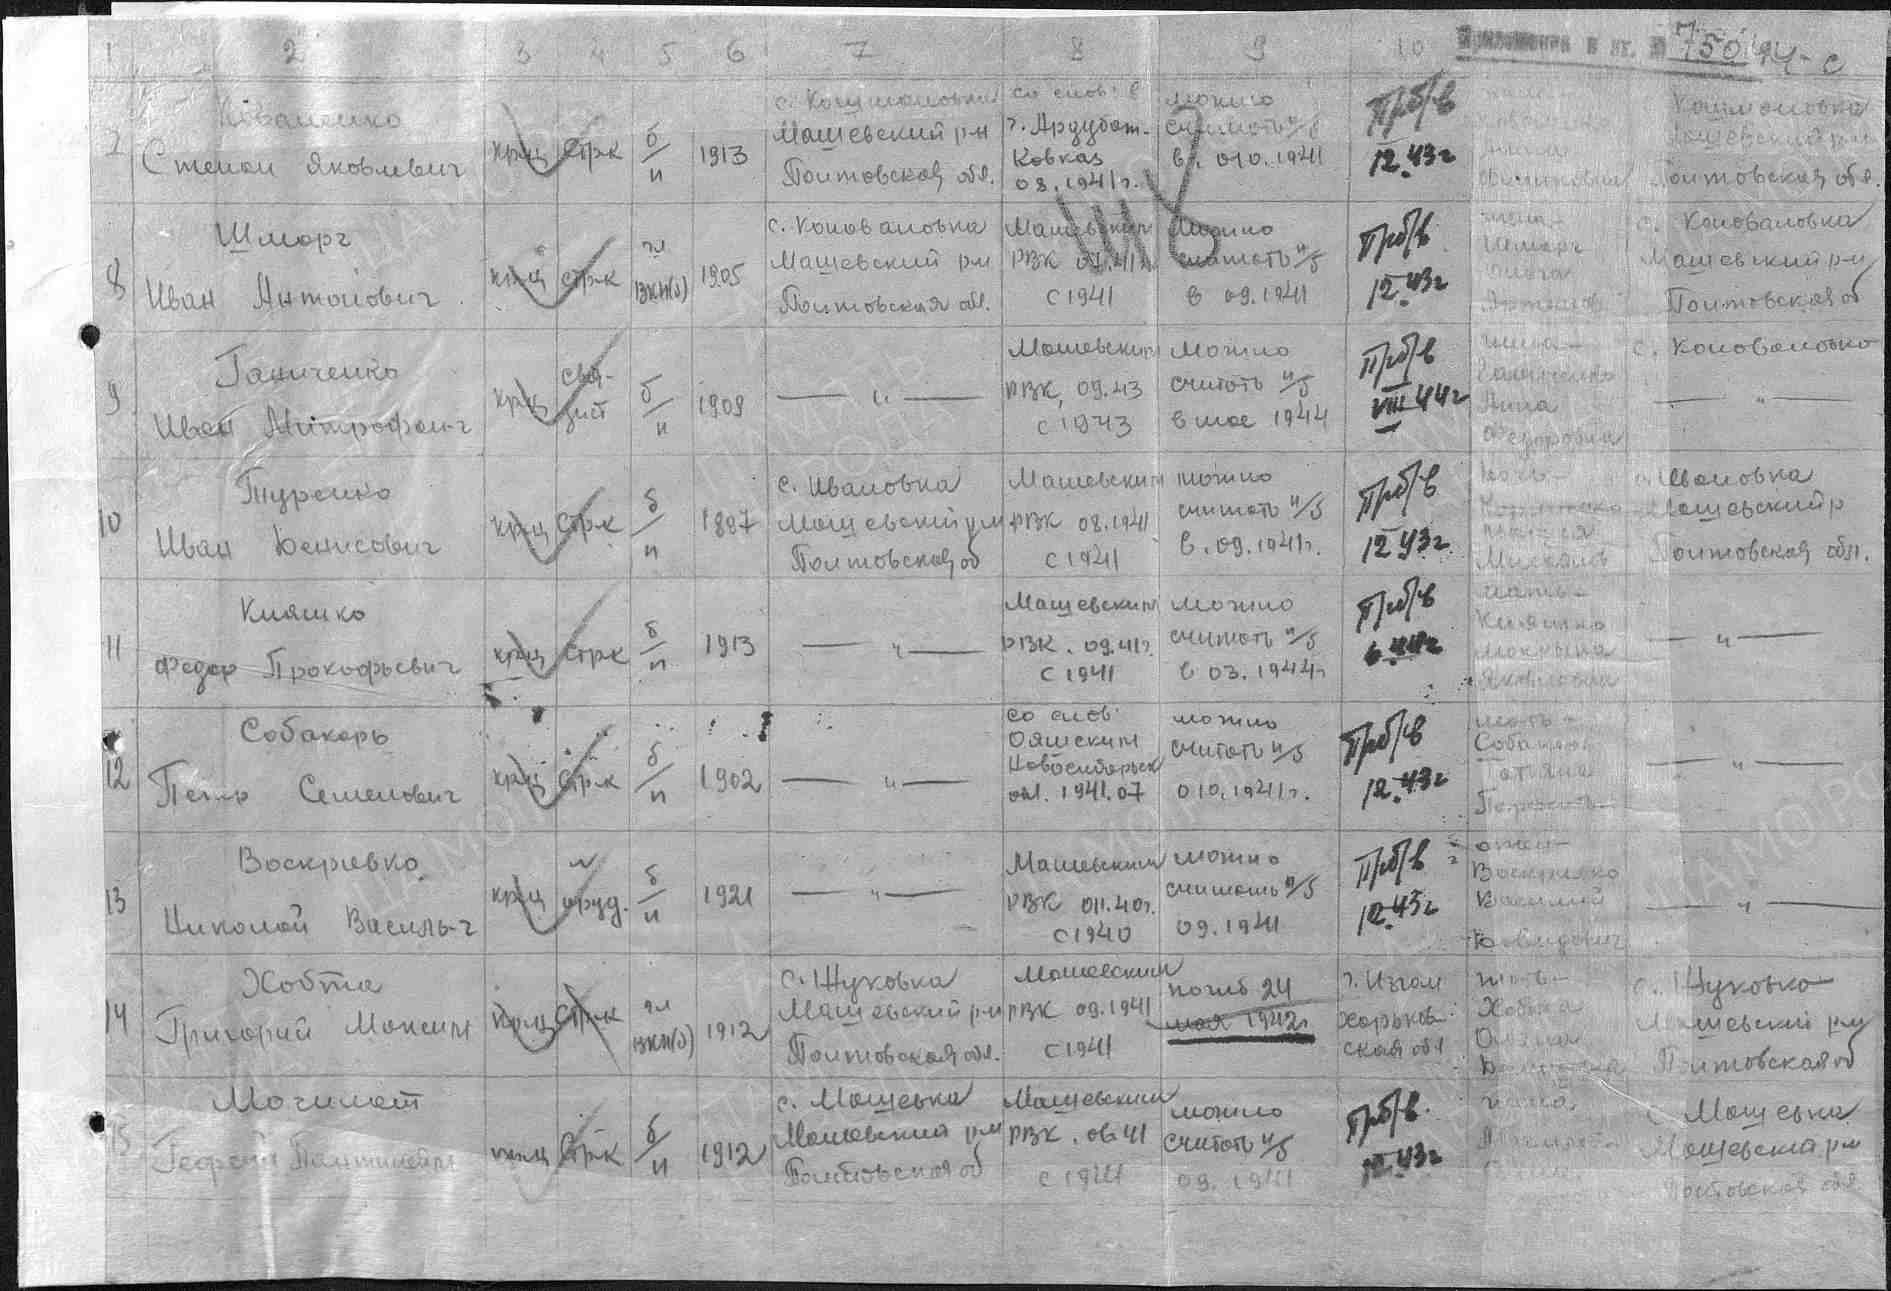 1 2 3 4 5 6 7 8 9 10
Приложение к вх. № 75094-с
Иваненко
Степан Яковлевич
кр-ц стр-к б/п 1913
Машевский р-н
Полтавская обл.
со слов в
Кавказ
08.1941г.
можно
считать п/б
в 010.1941
Прб/в
12.43г
Машевский р-н
Полтавская обл.
8
Шморг
Иван Антонович
кр-ц стр-к чл ВКП(б) 1905
с. Коновановка
Машевский р-н
Полтавская обл.
Машевским
РВК 07.41г
с 1941
можно
считать п/б
в 09.1941
Прб/в
12.43г
жена-
Шморг
с. Коновановка
Машевский р-н
Полтавская об
9
Ганиченко
Иван Митрофан-ч
кр-ц свя-
зист
б/п 1909
— " —
Машевским
РВК, 09.43
с 1943
можно
считать п/б
в мае 1944
Прб/в
VIII 44г
жена-
Ганиченко
Анна
Федоровна
с. Коновановка
— " —
10
Туренко
Иван Денисович
кр-ц стр-к б/п 1897
с. Ивановка
Машевский р-н
Полтовская об
Машевским
РВК 08.1941
с 1941
можно
считать п/б
в. 09.1941г.
Прб/в
12 43г.
дочь-
с. Ивановка
Машевский р
Полтовская обл.
11
Кияшко
Федор Прокофьевич
кр-ц стр-к б/п 1913
— " —
Машевским
РВК. 09.41г.
с 1941
можно
считать п/б
в 03.1944г
Прб/в
6.44г
мать-
Кияшко
Мокрына
Яковлевна
— " —
12
Собакарь
Петр Семенович
кр-ц стр-к б/п 1902
— " —
со слов
Ояшским
Новосибирск
обл. 1941.07
можно
считать п/б
010.1941г.
Прб/в
12.43г
мать-
Собакарь
Татьяна
— " —
13
Воскривко
Николай Василь-ч
кр-ц оруд. б/п 1921
— " —
Машевским
РВК 011.40г.
с 1940
можно
считать п/б
09.1941
Прб/в
12.43г
отец-
Воскривко
Василий
Давидович
— " —
14
Хобта
Григорий Максим
кр-ц стр-к чл ВКП(б) 1912
с. Жуковка
Машевский р-н
Полтавская обл.
Машевским
РВК 09.1941
с 1941
погиб 24
мая 1942г
г. Изюм
Харьков-
ская обл
мать-
Хобта
с. Жуковка
Машевский р-н
Полтовская об
15
Могилат
кр-ц стр-к б/п 1912
с. Машевка
Машевский р-н
Полтовская об
Машевским
РВК. 06.41
с 1941
можно
считать п/б
09.1941
Прб/в.
12.43г
жена
с. Машевка
Машевский р-н
Полтовская обл